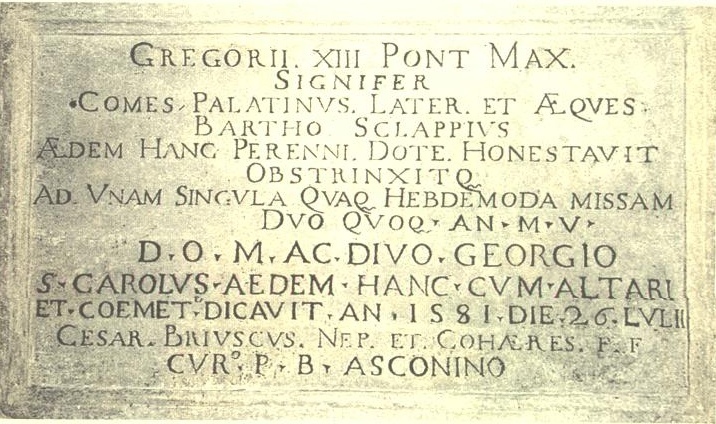 GREGORII. XIII PONT MAX.
SIGNIFER
·COMES· PALATINVS. LATER. ET ÆQVES·
BARTHO SCLAPPIVS
ÆDEM HANC PERENNI. DOTE. HONESTAVIT
OBSTRINXITQ
AD. VNAM SINGVLA QVAQ HEBDEMODA MISSAM
DVO QVOQ· AN· M· V·
D·O·M·AC·DIVO·GEORGIO
S·CAROLVS·AEDEM·HANC·CVM·ALTARI
ET·COEMET·DICAVIT·AN·1581·DIE·26·LVLII
CESAR. BRIVSCVS. NEP. ET. COHÆRES. F. F
CVRº·P·B·ASCONINO